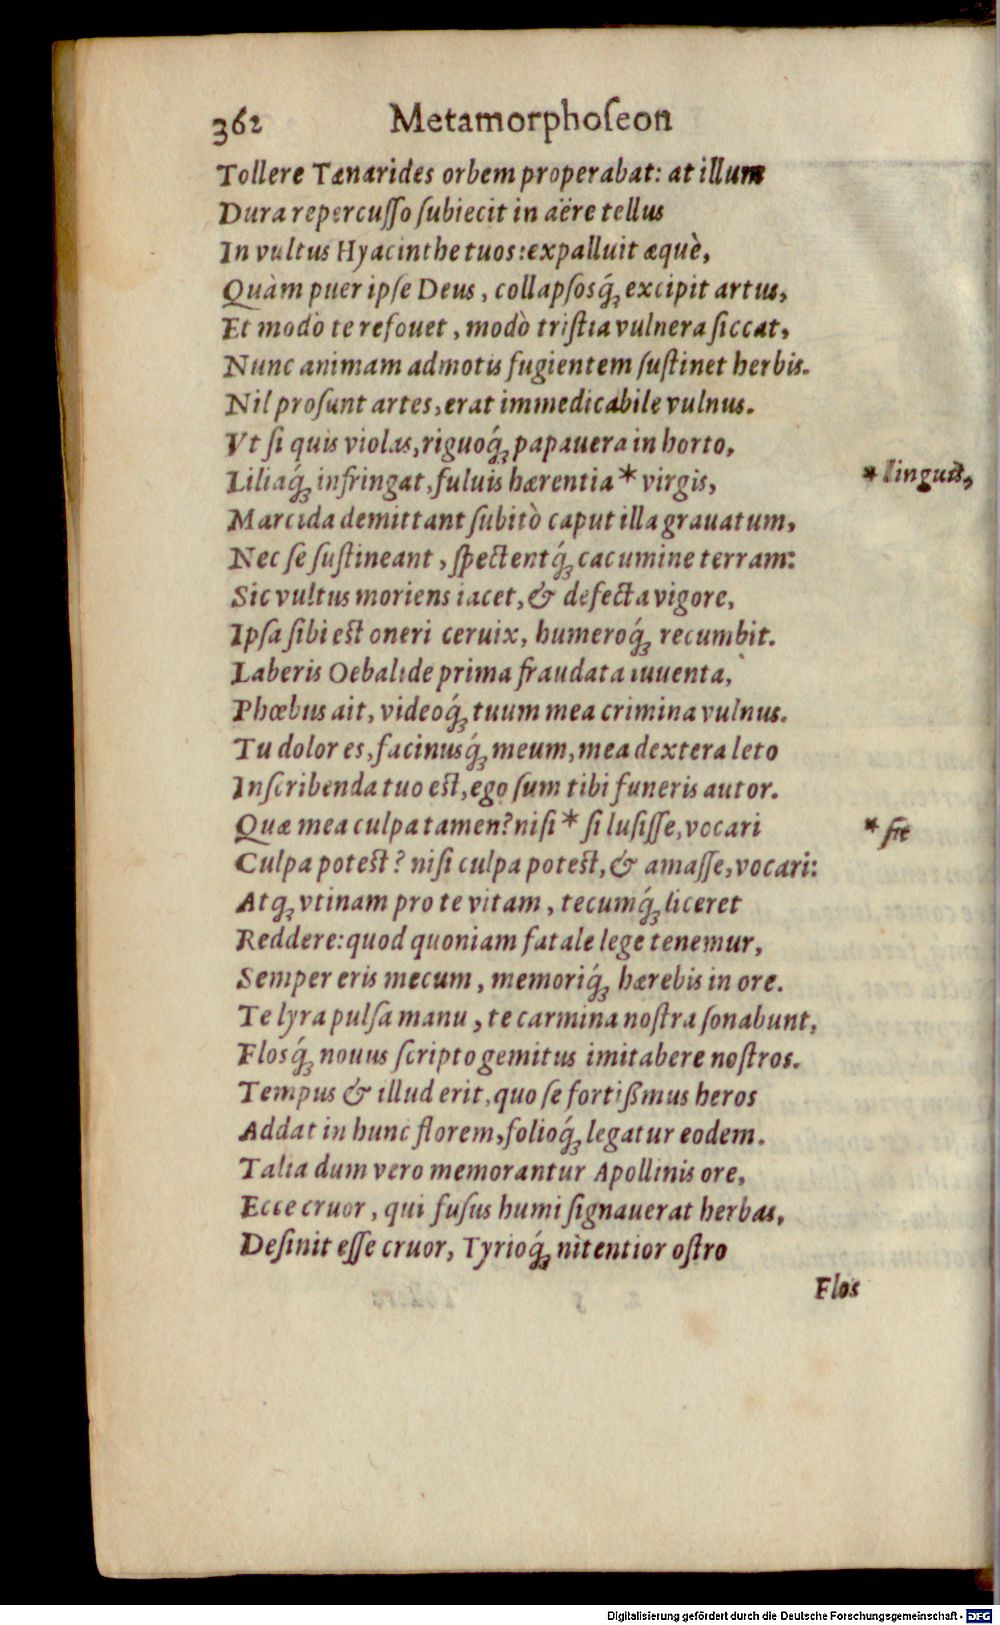 362 Metamorphoſeon
Tollere Tænarides orbem properabat: at illum
Dura repercuſſo ſubiecit in aëre tellus
In vultus Hyacinthe tuos: expalluit æquè,
Quàm puer ipſe Deus, collapſosq́ꝫ excipit artus,
Et modò te refouet, modò triſtia vulnera ſiccat,
Nunc animam admotis fugientem ſuſtinet herbis.
Nil proſunt artes, erat immedicabile vulnus.
Vt ſi quis violas, riguoq́ꝫ papauera in horto,
Liliaq́ꝫ infringat, fuluis hærentia * virgis,
* linguis,
Marcida demittant ſubitò caput illa grauatum,
Nec ſe ſuſtineant, ſpectentq́ꝫ cacumine terram:
Sic vultus moriens iacet, & defecta vigore,
Ipſa ſibi est oneri ceruix, humeroq́ꝫ recumbit.
Laberis Oebalide prima fraudata iuuenta,
Phœbus ait, videoq́ꝫ tuum mea crimina vulnus.
Tu dolor es, facinusq́ꝫ meum, mea dextera leto
Inſcribenda tuo est, ego ſum tibi funeris autor.
Quæ mea culpa tamen? niſi * ſi luſiſſe, vocari
Culpa potest? niſi culpa potest, & amaſſe, vocari:
Atqꝫ vtinam pro te vitam, tecumq́ꝫ liceret
Reddere: quod quoniam fatale lege tenemur,
Semper eris mecum, memoriq́ꝫ hærebis in ore.
Te lyra pulſa manu, te carmina noſtra ſonabunt,
Flosq́ꝫ nouus ſcripto gemitus imitabere noſtros.
Tempus & illud erit, quo ſe fortißmus heros
Addat in hunc florem, folioq́ꝫ legatur eodem.
Talia dum vero memorantur Apollinis ore,
Ecce cruor, qui fuſus humi ſignauerat herbas,
Deſinit eſſe cruor, Tyrioq́ꝫ nitentior oſtro
Flos
Digitalisierung gefördert durch die Deutsche Forschungsgemeinschaft - DFG